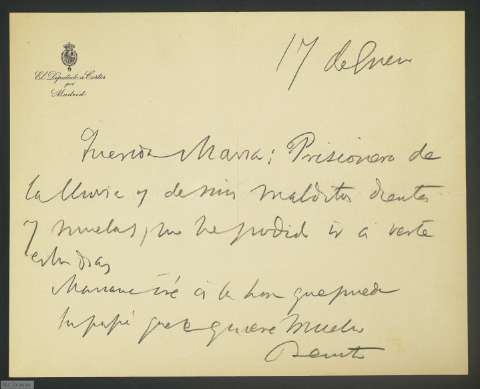 El Diputado a Cortes
por
Madrid
17 de Enero
Querida María: Prisionero de
la lluvia y de mis malditos dientes
y muelas, no he podido ir a verte
estos días
Manana iré a la hora que pueda
tu papá que te quiere mucho
Benito